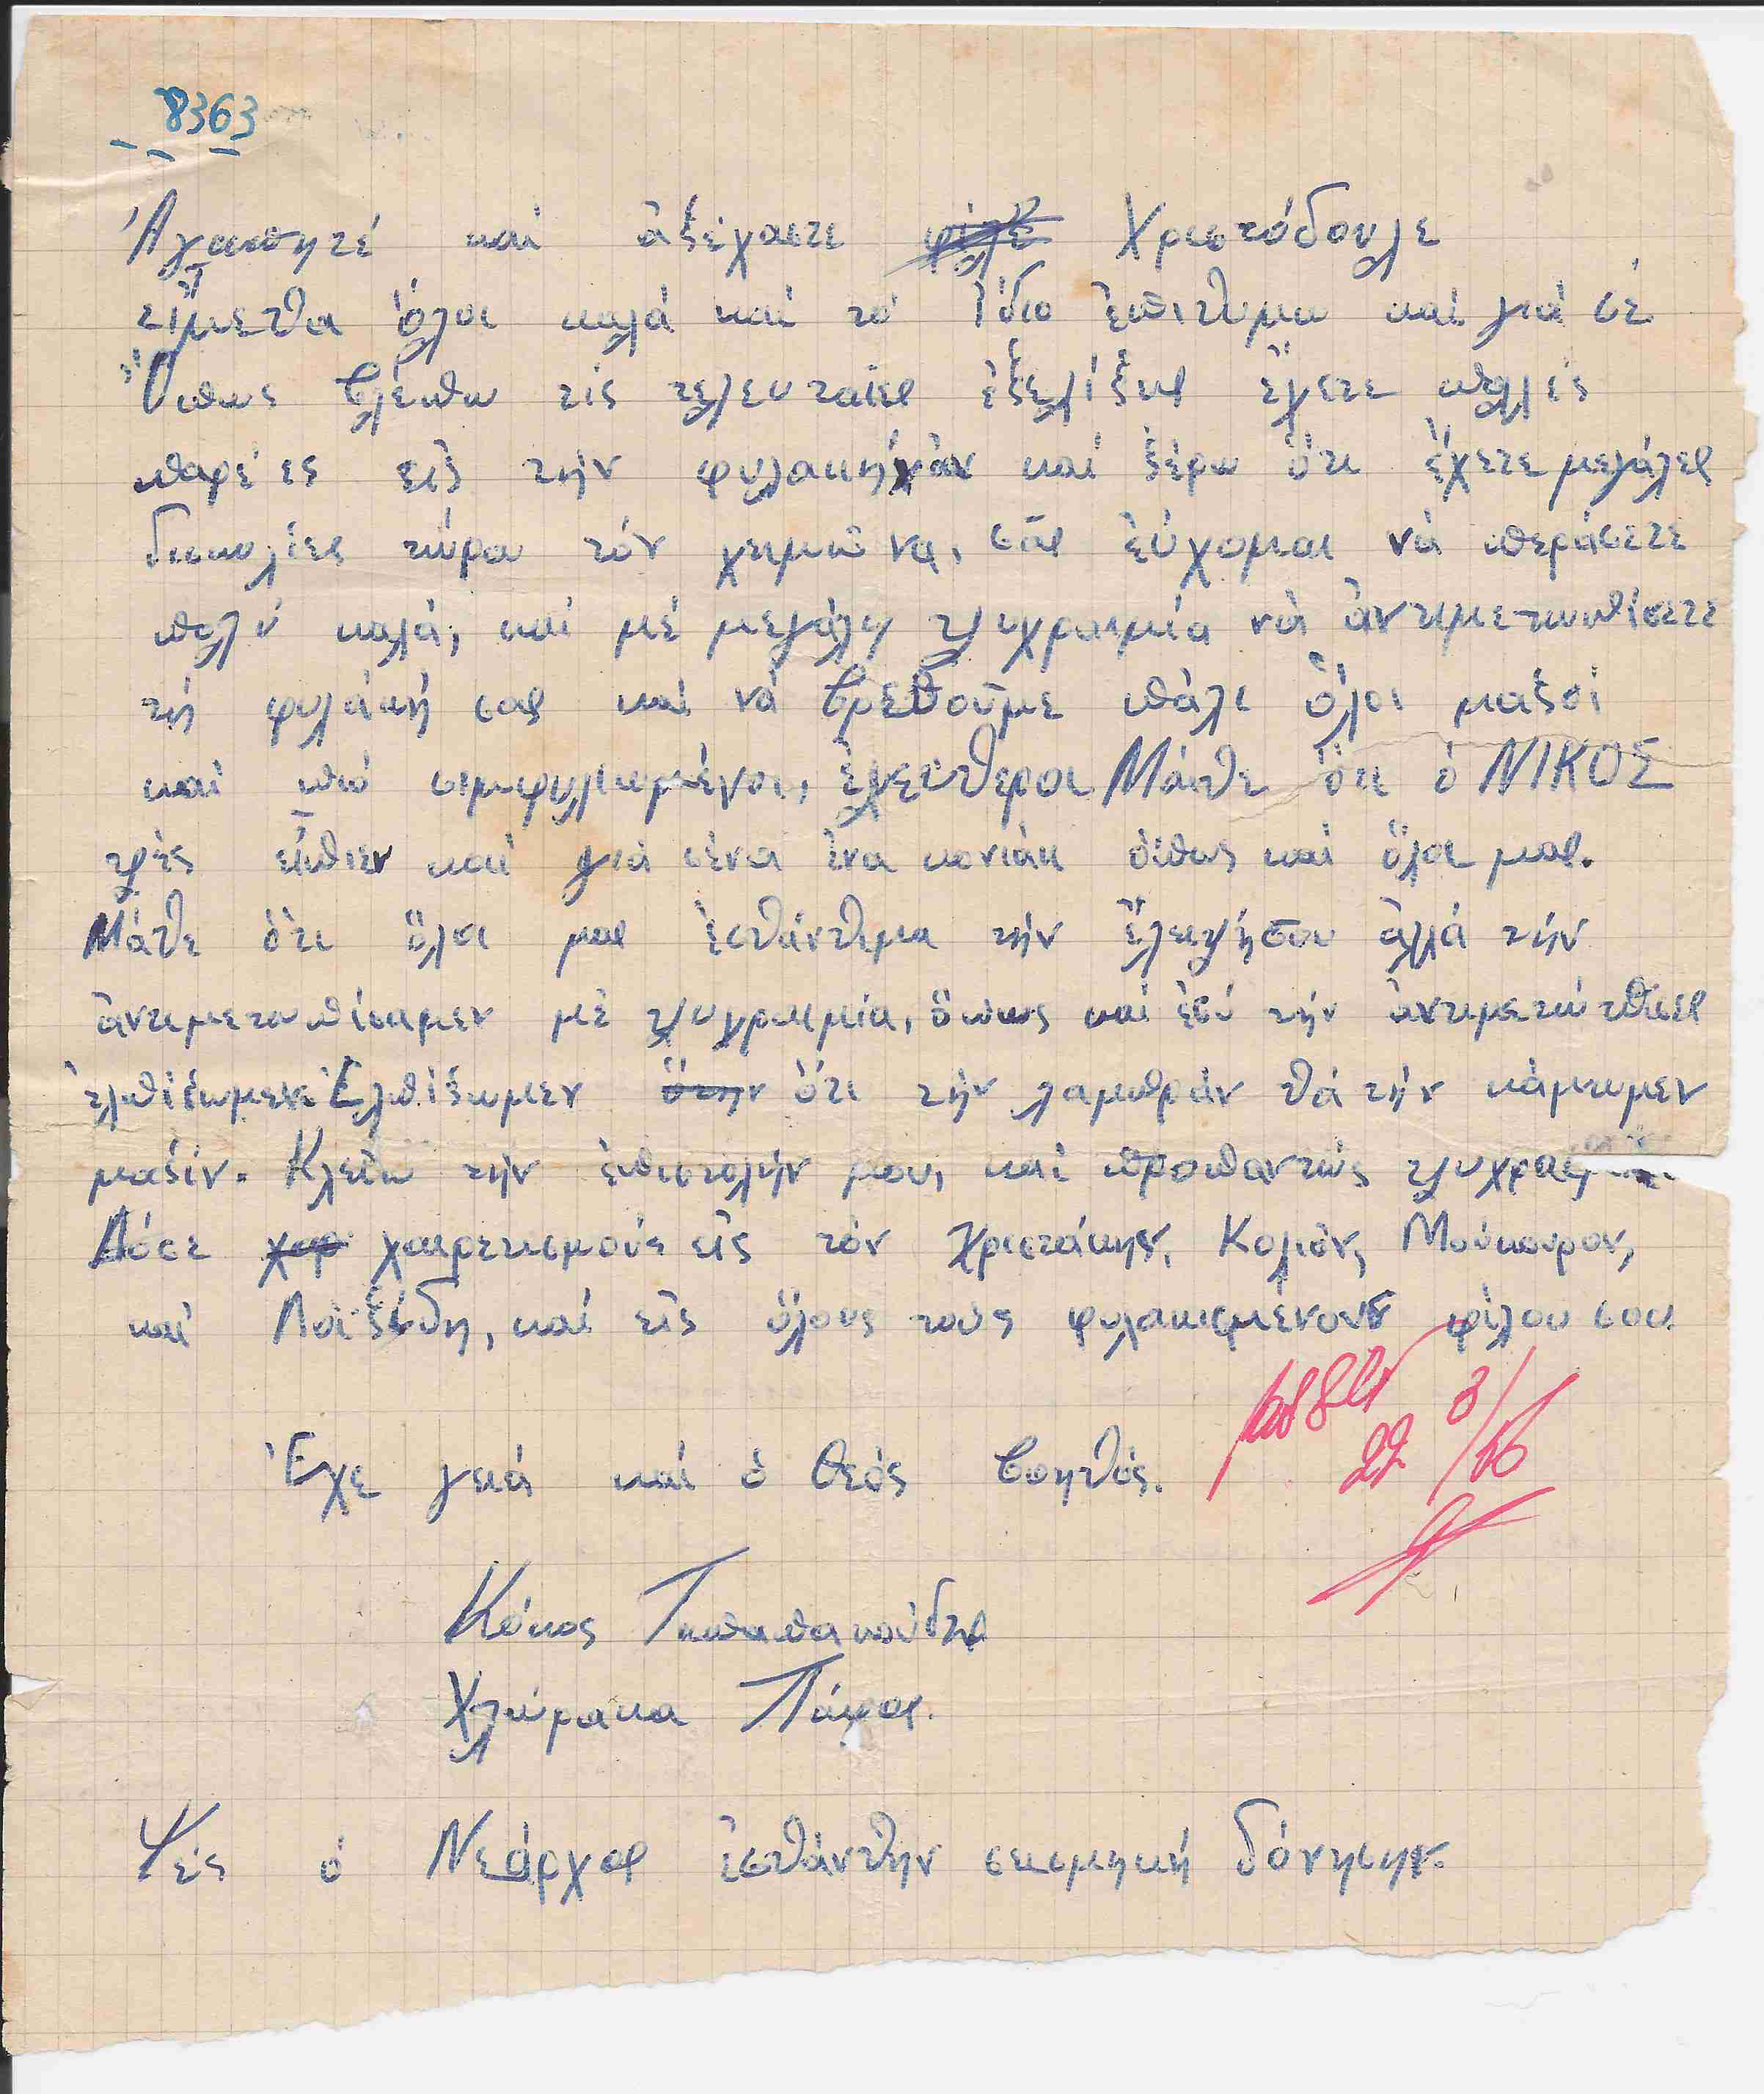 8363
Ἀγαπητέ καί ἀξέχαστε φίλε Χριστόδουλε
εἴμεθα ὅλοι καλά καί τό ἴδιο ἐπιθυμώ καί γιά σέ
Ὅπως βλέπω τίς τελευταῖες ἐξελίξεις ἔχετε πολλές
παρέες εἰς τήν φυλακήν καί ξέρω ὅτι ἔχετε μεγάλες
δισκολίες τώρα τόν χειμῶνα, σᾶς εὐχομαι νά περάσετε
πολύ καλά, καί μέ μεγάλη ψυχραιμία νά ἀντιμετωπίσετε
τή φυλάκή σας καί νά βρεθοῦμε πάλι ὅλοι μαζοί
καί πιό σιμφιλιωμένοι, ἐλεύθεροι Μάθε ὅτι ὁ ΝΙΚΟΣ
ψές εἴπιεν καί γιά σένα ἕνα κονιάκ ὅπως καί ὅλοι μας.
Μάθε ὅτι ὅλοι μας ἐσθάνθημα τήν ἔλειψή σου ἀλλά τήν
ἀντιμετωπίσαμεν μέ ψυχραιμία, ὅπως καί ἐσύ τήν ἀντιμετώπισες
ἐλπίζωμεν Ἐλπίζωμεν ὅταν ὅτι τήν λαμπράν θά τήν κάμωμεν
μαζίν. Κλείω τήν ἐπιστολήν μου, καί προπαντώς
Δόσε χαρ χαιρετισμούς εἰς τόν Χριστάκην, Κολιόν, Μούκουρον,
καί Λοϊζίδη, καί εἰς ὅλους τούς φυλακισμένους φίλου σου.
Ἔχε γειά καί ὁ Θεός βοηθός.
22 3/56
Κόκος Παπαπακούδης
Χλώρακα Πάφος.
Ψές ὁ Νεάρχος ἐσθάνθην σεισμηκή δόνησην.